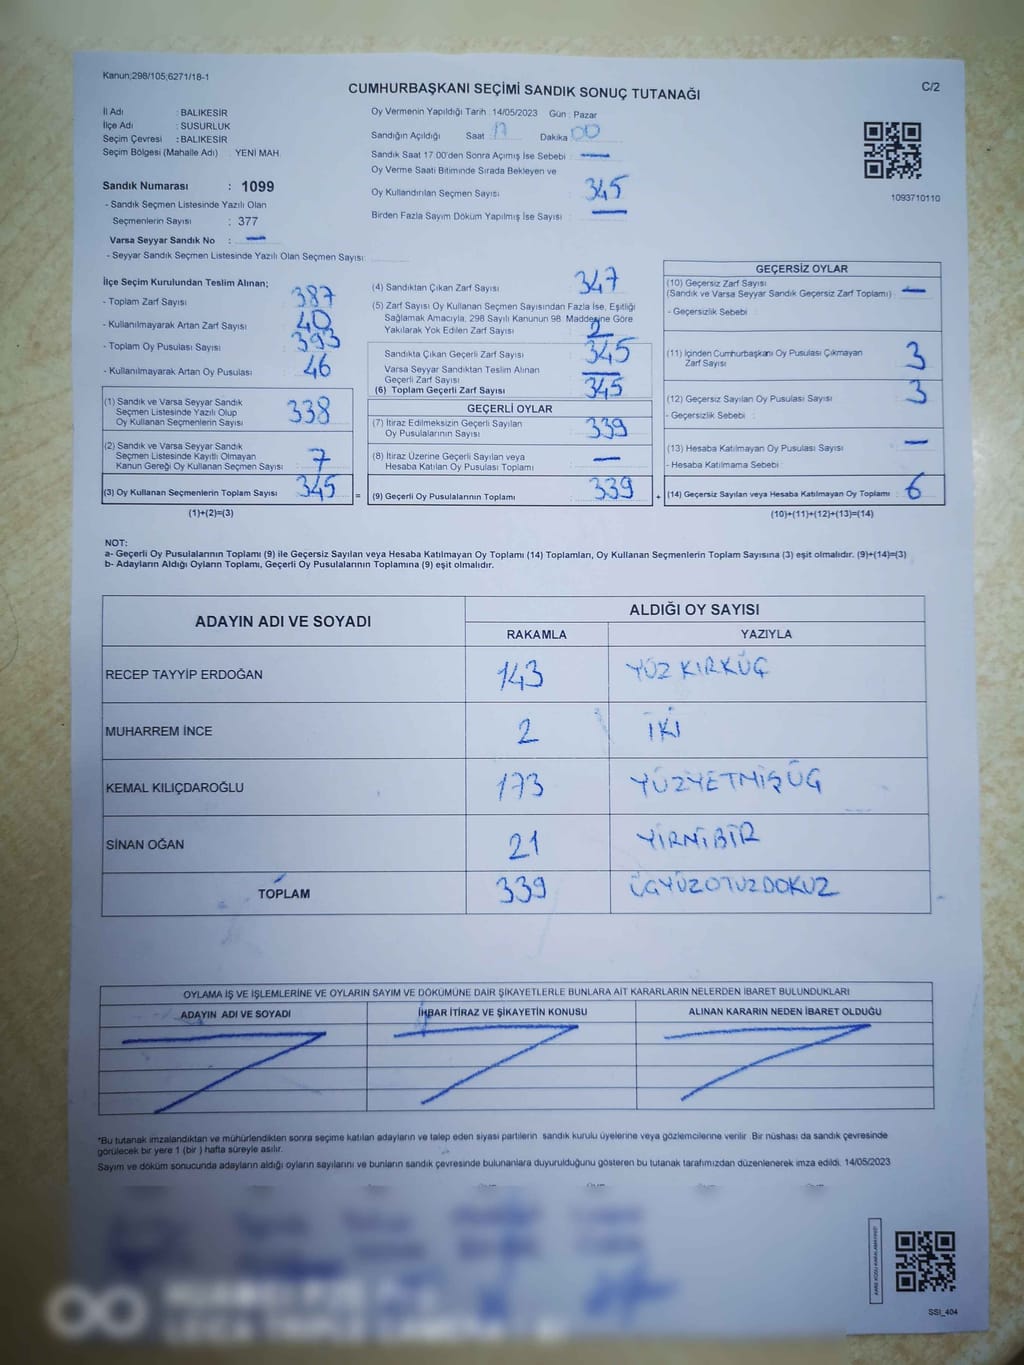 Kanun;298/105;6271/18-1
CUMHURBAŞKANI SEÇİMİ SANDIK SONUÇ TUTANAĞI
C/2
İl Adı : BALIKESİR
İlçe Adı : SUSURLUK
Seçim Çevresi : BALIKESİR
Seçim Bölgesi (Mahalle Adı) : YENİ MAH.
Sandık Numarası : 1099
- Sandık Seçmen Listesinde Yazılı Olan
Seçmenlerin Sayısı : 377
Varsa Seyyar Sandık No : —
- Seyyar Sandık Seçmen Listesinde Yazılı Olan Seçmen Sayısı:
Oy Vermenin Yapıldığı Tarih : 14/05/2023 Gün : Pazar
Sandığın Açıldığı Saat 17 Dakika 00
Sandık Saat 17:00'den Sonra Açımış İse Sebebi : —
Oy Verme Saati Bitiminde Sırada Bekleyen ve
Oy Kullandırılan Seçmen Sayısı : 345
Birden Fazla Sayım Döküm Yapılmış İse Sayısı : —
1093710110
İlçe Seçim Kurulundan Teslim Alınan;
- Toplam Zarf Sayısı : 387
- Kullanılmayarak Artan Zarf Sayısı : 40
- Toplam Oy Pusulası Sayısı : 393
- Kullanılmayarak Artan Oy Pusulası : 46
(1) Sandık ve Varsa Seyyar Sandık
Seçmen Listesinde Yazılı Olup
Oy Kullanan Seçmenlerin Sayısı : 338
(2) Sandık ve Varsa Seyyar Sandık
Seçmen Listesinde Kayıtlı Olmayan
Kanun Gereği Oy Kullanan Seçmen Sayısı : 7
(3) Oy Kullanan Seçmenlerin Toplam Sayısı : 345 =
(1)+(2)=(3)
(4) Sandıktan Çıkan Zarf Sayısı : 347
(5) Zarf Sayısı Oy Kullanan Seçmen Sayısından Fazla İse, Eşitliği
Sağlamak Amacıyla, 298 Sayılı Kanunun 98. Maddesine Göre
Yakılarak Yok Edilen Zarf Sayısı : 2
Sandıkta Çıkan Geçerli Zarf Sayısı : 345
Varsa Seyyar Sandıktan Teslim Alınan
Geçerli Zarf Sayısı : —
(6) Toplam Geçerli Zarf Sayısı : 345
GEÇERLİ OYLAR
(7) İtiraz Edilmeksizin Geçerli Sayılan
Oy Pusulalarının Sayısı : 339
(8) İtiraz Üzerine Geçerli Sayılan veya
Hesaba Katılan Oy Pusulası Toplamı : —
(9) Geçerli Oy Pusulalarının Toplamı : 339 +
GEÇERSİZ OYLAR
(10) Geçersiz Zarf Sayısı
(Sandık ve Varsa Seyyar Sandık Geçersiz Zarf Toplamı) : —
- Geçersizlik Sebebi :
(11) İçinden Cumhurbaşkanı Oy Pusulası Çıkmayan
Zarf Sayısı : 3
(12) Geçersiz Sayılan Oy Pusulası Sayısı : 3
- Geçersizlik Sebebi :
(13) Hesaba Katılmayan Oy Pusulası Sayısı : —
- Hesaba Katılmama Sebebi :
(14) Geçersiz Sayılan veya Hesaba Katılmayan Oy Toplamı : 6
(10)+(11)+(12)+(13)=(14)
NOT:
a- Geçerli Oy Pusulalarının Toplamı (9) ile Geçersiz Sayılan veya Hesaba Katılmayan Oy Toplamı (14) Toplamları, Oy Kullanan Seçmenlerin Toplam Sayısına (3) eşit olmalıdır. (9)+(14)=(3)
b- Adayların Aldığı Oyların Toplamı, Geçerli Oy Pusulalarının Toplamına (9) eşit olmalıdır.
ADAYIN ADI VE SOYADI
ALDIĞI OY SAYISI
RAKAMLA YAZIYLA
RECEP TAYYİP ERDOĞAN 143 YÜZ KIRKÜÇ
MUHARREM İNCE 2 İKİ
KEMAL KILIÇDAROĞLU 173 YÜZYETMİŞÜÇ
SİNAN OĞAN 21 YİRMİBİR
TOPLAM 339 ÜÇYÜZOTUZDOKUZ
OYLAMA İŞ VE İŞLEMLERİNE VE OYLARIN SAYIM VE DÖKÜMÜNE DAİR ŞİKAYETLERLE BUNLARA AİT KARARLARIN NELERDEN İBARET BULUNDUKLARI
ADAYIN ADI VE SOYADI İHBAR İTİRAZ VE ŞİKAYETİN KONUSU ALINAN KARARIN NEDEN İBARET OLDUĞU
*Bu tutanak imzalandıktan ve mühürlendikten sonra seçime katılan adayların ve talep eden siyasi partilerin sandık kurulu üyelerine veya gözlemcilerine verilir. Bir nüshası da sandık çevresinde
görülecek bir yere 1 (bir ) hafta süreyle asılır.
Sayım ve döküm sonucunda adayların aldığı oyların sayılarını ve bunların sandık çevresinde bulunanlara duyurulduğunu gösteren bu tutanak tarafımızdan düzenlenerek imza edildi. 14/05/2023
SSI_404